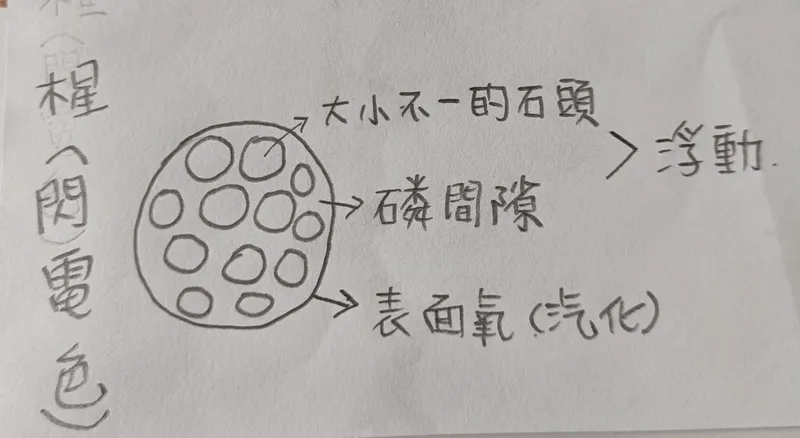 大小不一的石頭
浮動.
磷間隙
表面氧(汽化)
(閃電色)